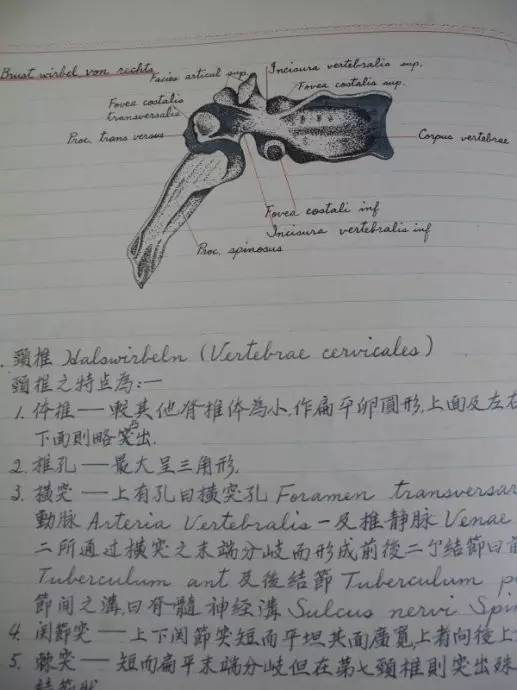 Brust wirbel von rechts
Facies articul sup.
Incisura vertebralis sup.
Fovea costalis sup.
Fovea costalis
transversalis
Proc. trans versus
Corpus vertebrae
Fovea costali inf
Incisura vertebralis inf
Proc. spinosus
頸椎 Halswirbeln (Vertebrae cervicales)
頸椎之特点為:—
1. 体椎——較其他脊椎体為小,作扁平卵圓形,上面及左右
下面則略突出.
2. 椎孔——最大呈三角形.
3. 橫突——上有孔曰橫突孔 Foramen transversar
動脈 Arteria Vertebralis 一及椎靜脈 Venae
二所通过橫突之末端分岐而形成前後二个結節曰前
Tuberculum ant 及後結節 Tuberculum p
節间之溝,曰脊髓神经溝 Sulcus nervi Spin
4. 関節突——上下関節突短而平坦其面廣寬,上者向後上
5. 棘突——短而扁平末端分岐但在第七頸椎則突出殊
結節狀